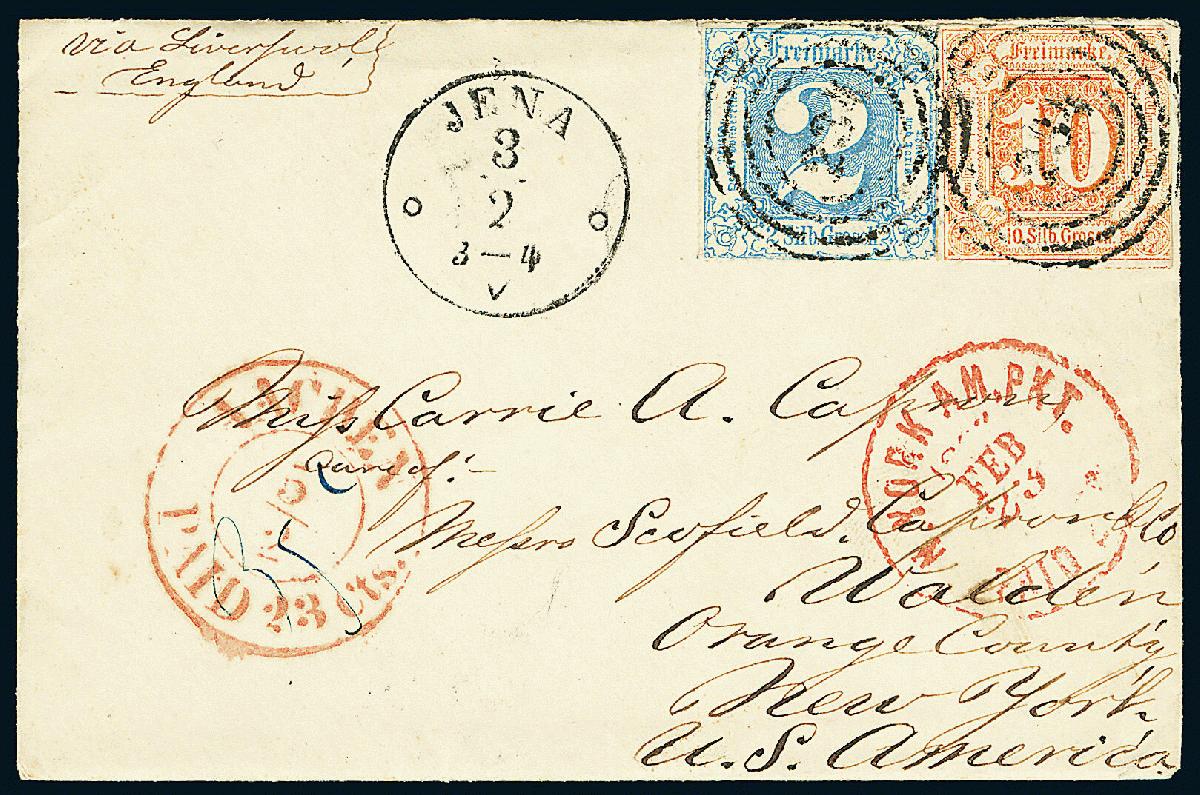 via Liverpool
England
JENA
3
2
3–4
V
Freimarke
2
2 Silb. Groschen
Freimarke
10
10. Silb. Groschen
Miss Carrie A. Capron,
Care of:-
Messrs Scofield, Capron & Co
Walden
Orange County
New York
U. S. America
AACHEN
PAID 23 Cts.
N. YORK AM. PKT.
FEB
PAID